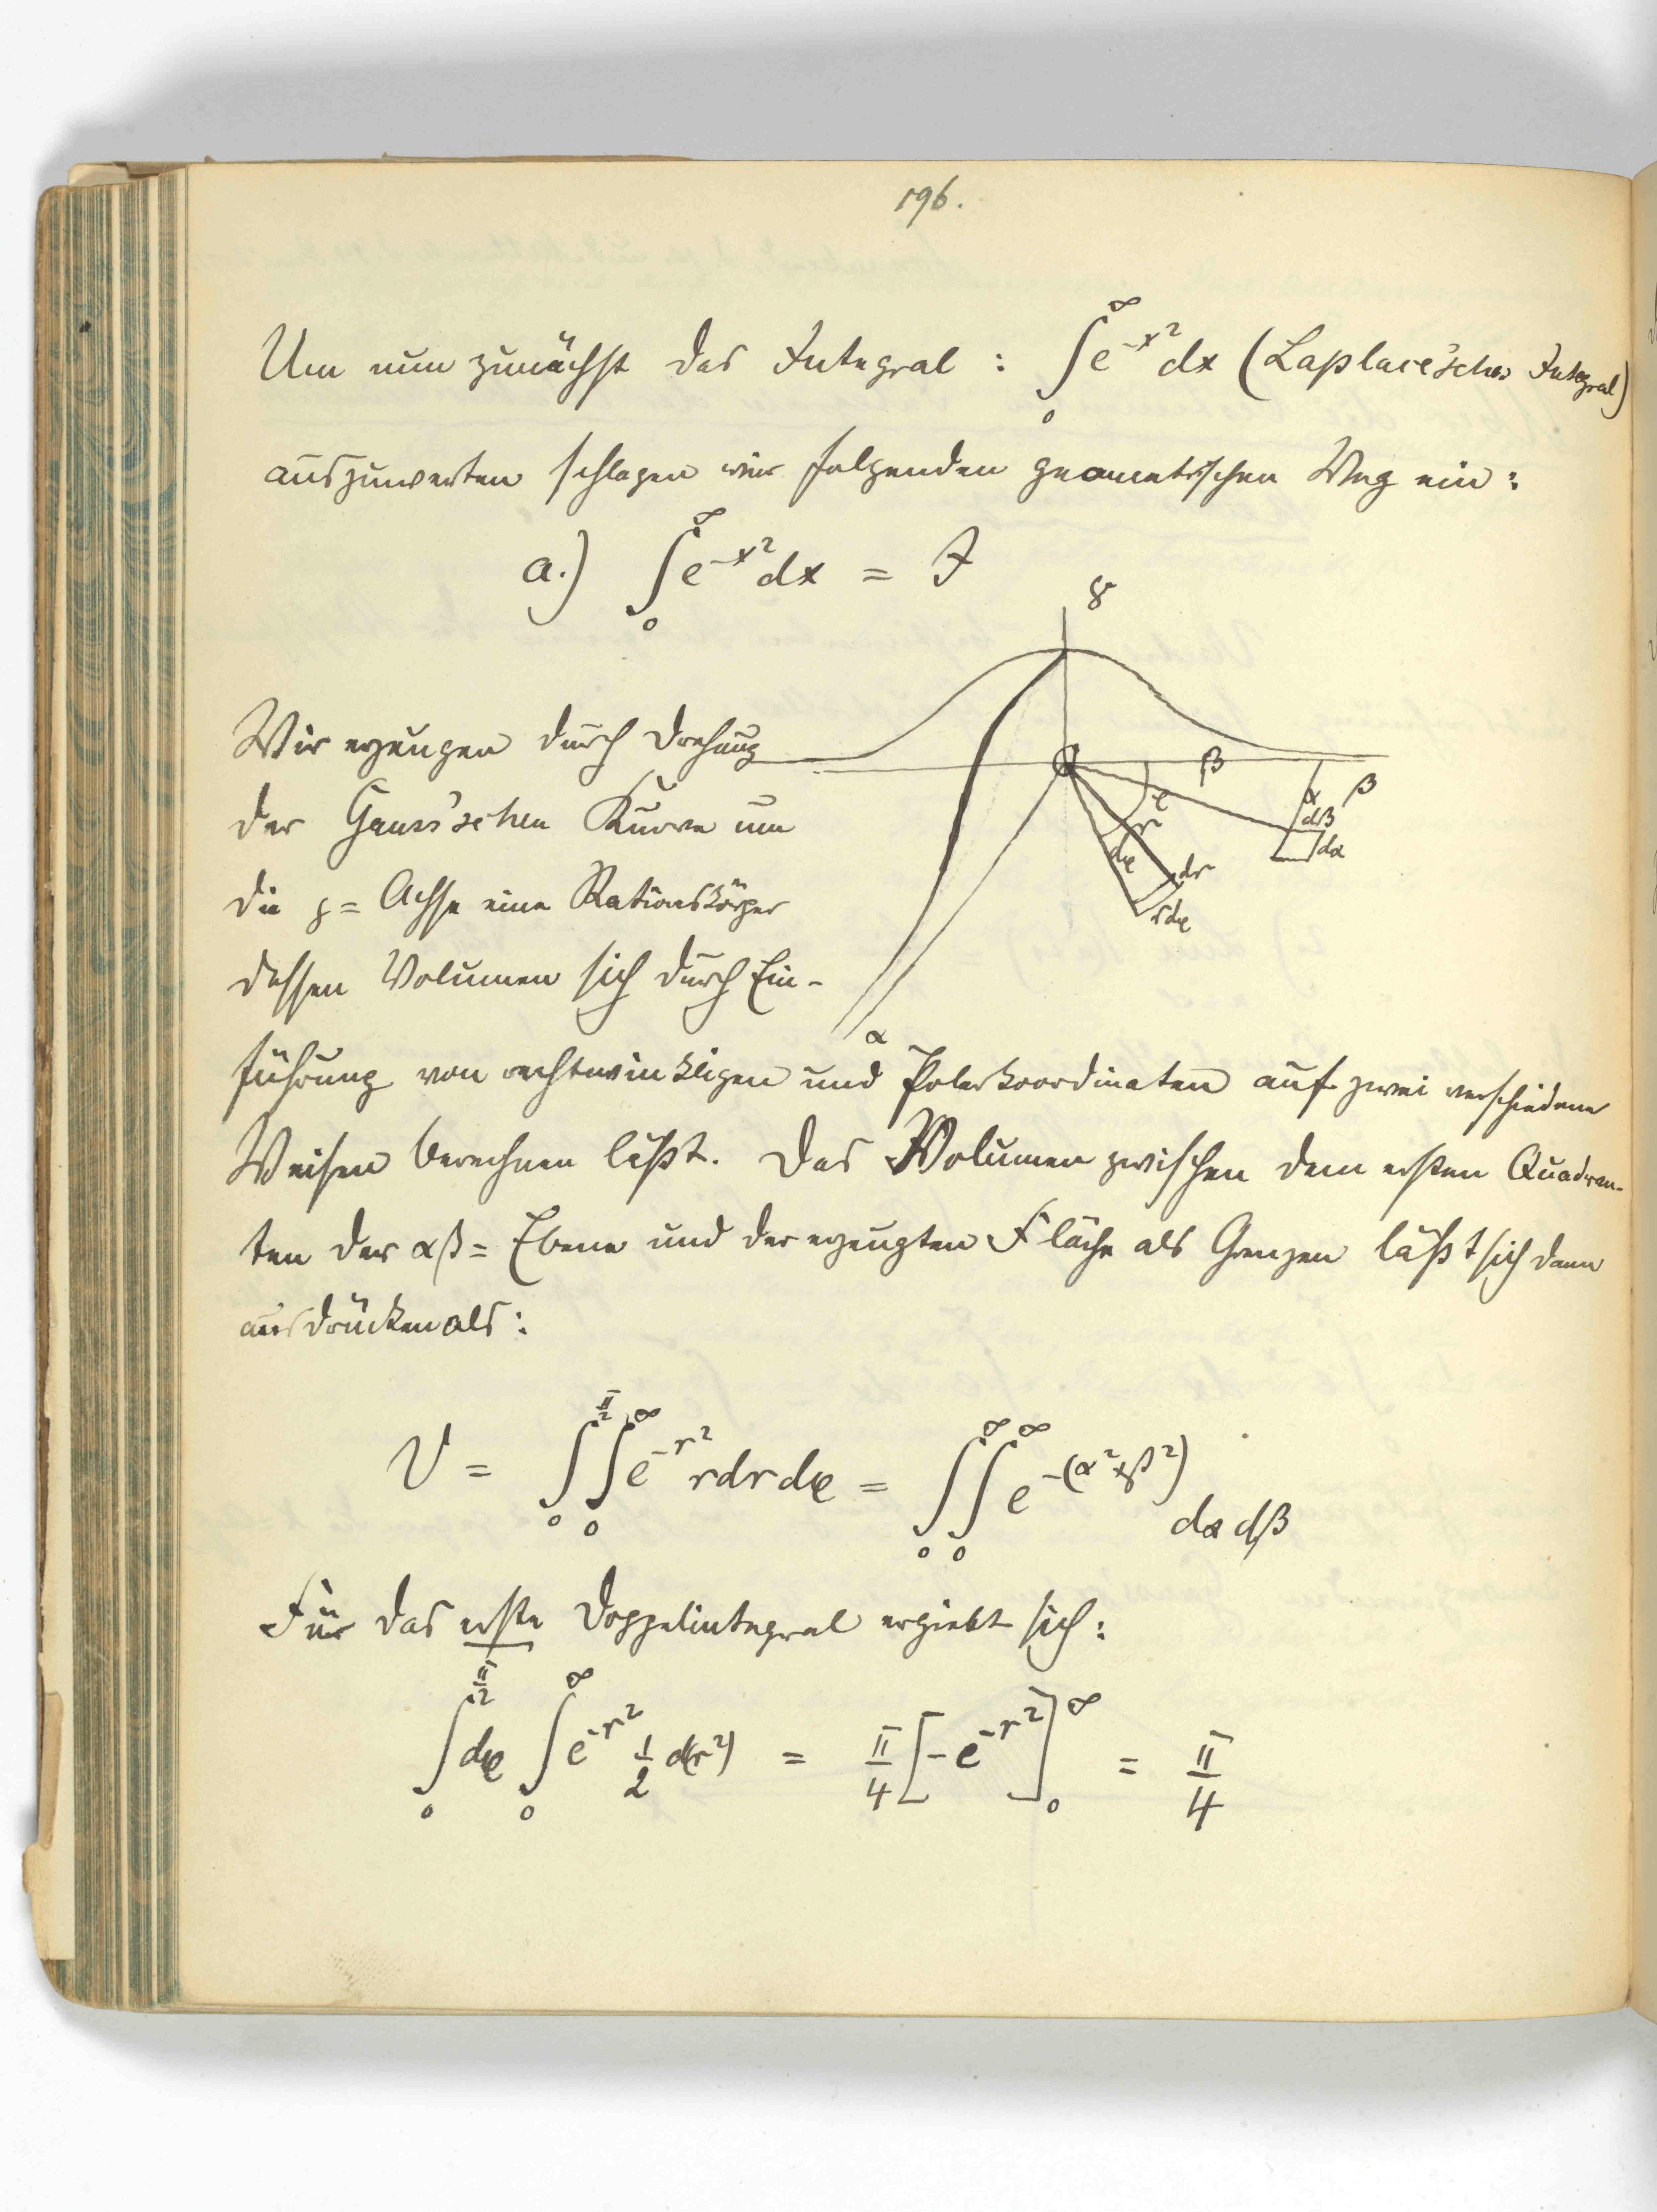 196.
Um nun zunächst das Integral : ∫₀^∞ e^{-x²} dx (Laplace'sches Integral)
auszuwerten schlagen wir folgenden geometrischen Weg ein :
a.) ∫₀^∞ e^{-x²} dx = J
γ
Wir erzeugen durch Drehung
der Gauss'schen Kurve um
die γ = Achse eine Rationskörper
dessen Volumen sich durch Ein-
β
β
α
dβ
dα
φ
r
dφ
dr
rdφ
α
führung von rechtwinkligen und Polarkoordinaten auf zwei verschiedene
Weisen berechnen läßt. Das Volumen zwischen dem ersten Quadran-
ten der αβ = Ebene und der erzeugten Fläche als Grenzen läßt sich dann
ausdrücken als :
V = ∫₀^{π/2} ∫₀^∞ e^{-r²} r dr dφ = ∫₀^∞ ∫₀^∞ e^{-(α²+β²)} dα dβ
Für das erste Doppelintegral ergiebt sich :
∫₀^{π/2} dφ ∫₀^∞ e^{-r²} 1/2 d(r²) = π/4 [-e^{-r²}]₀^∞ = π/4